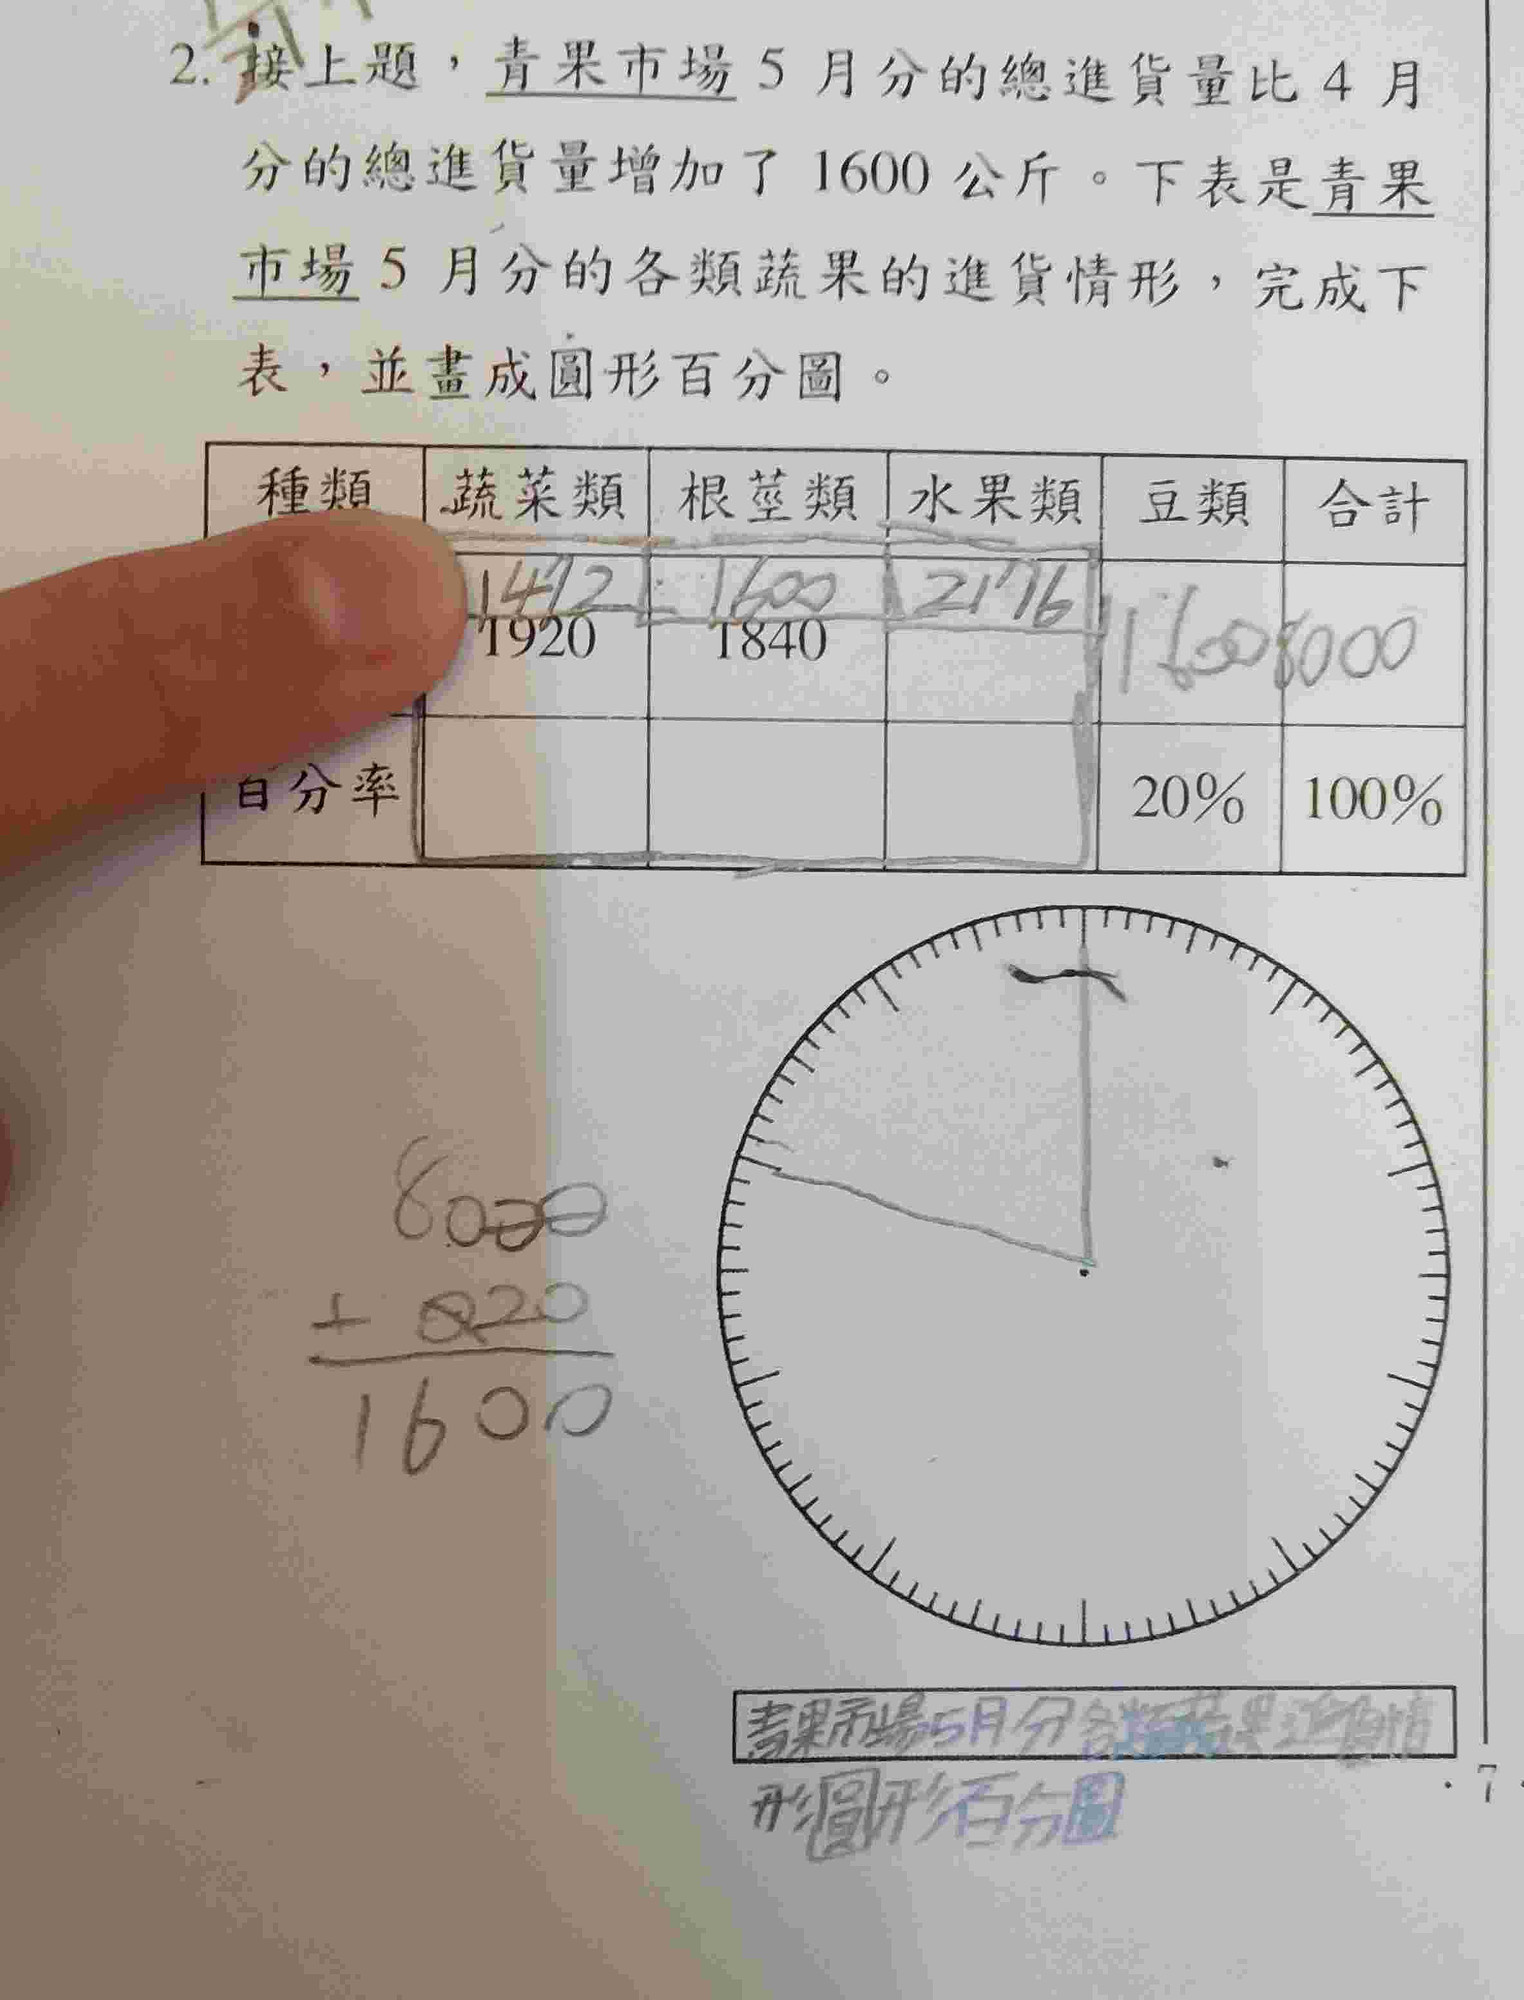 2. 接上題，青果市場 5 月分的總進貨量比 4 月
分的總進貨量增加了 1600 公斤。下表是青果
市場 5 月分的各類蔬果的進貨情形，完成下
表，並畫成圓形百分圖。
種類 蔬菜類 根莖類 水果類 豆類 合計
1472 1600 2176
1920 1840 1600 8000
百分率 20% 100%
8000
20
1600
青果市場5月分各類蔬果進貨情
形圓形百分圖
·7·